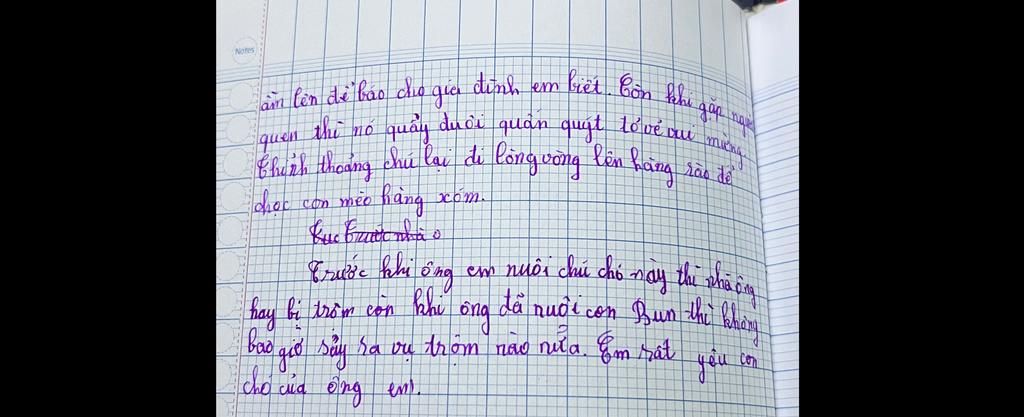 Notes
ầm lên để báo cho gia đình em biết. Còn khi gặp người
quen thì nó quẫy đuôi quấn quýt tỏ vẻ vui mừng.
Thỉnh thoảng chú lại đi lòng vòng lên hàng rào để
chọc con mèo hàng xóm.
Trước khi ông em nuôi chú chó này thì nhà ông
hay bị trộm còn khi ông đã nuôi con Bun thì không
bao giờ sảy ra vụ trộm nào nữa. Em rất yêu con
chó của ông em.